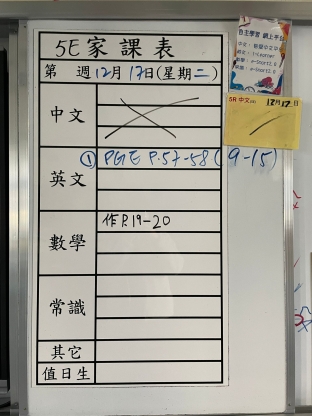 5E家課表
第 週12月17日(星期二)
中文
英文
① PGE P.57-58 (9-15)
數學
作P.19-20
常識
其它
值日生
自主學習 網上平台
5R 中文
12月17日